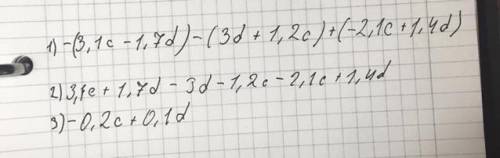 1) -(3,1c - 1,7d) - (3d + 1,2c) + (-2,1c + 1,4d)
2) 3,1c + 1,7d - 3d - 1,2c - 2,1c + 1,4d
3) -0,2c + 0,1d